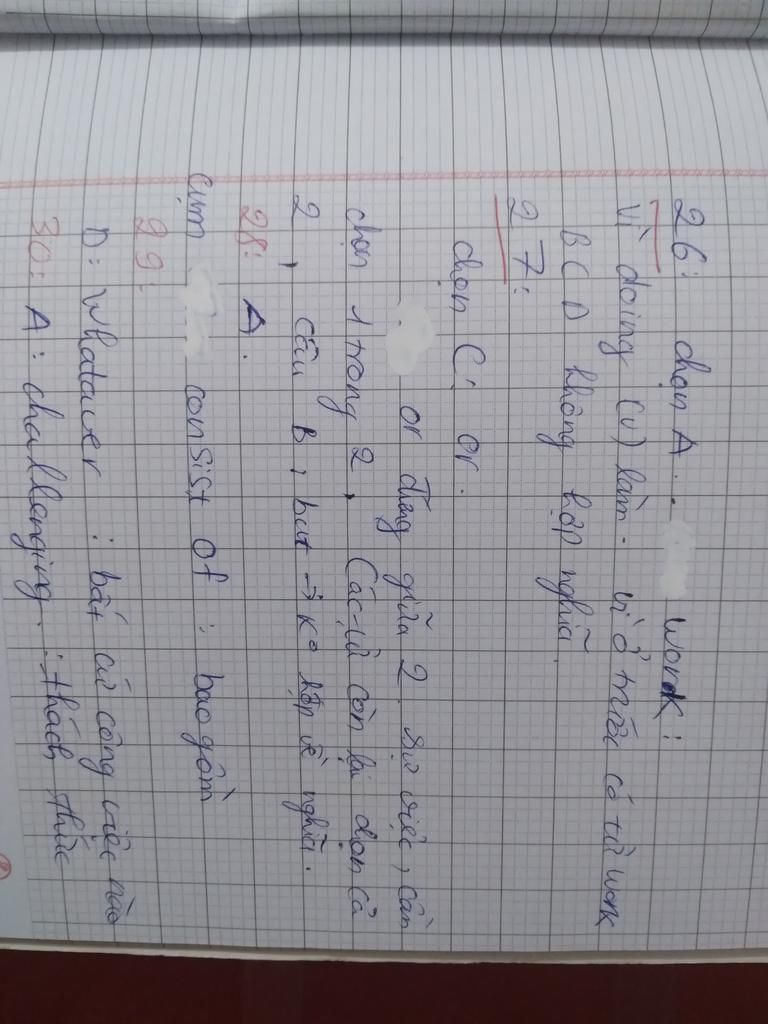 26: chọn A. work:
vì doing (v) làm. vì ở trước có từ work
B C D không hợp nghĩa.
27:
chọn C: or.
or dùng giữa 2 sự việc, cần
chọn 1 trong 2, các từ còn lại chọn cả
2, câu B, but → K° hợp về nghĩa.
28: A.
cụm consist of : bao gồm
29:
D: Whatever : bất cứ công việc nào
30: A: challenging : thách thức